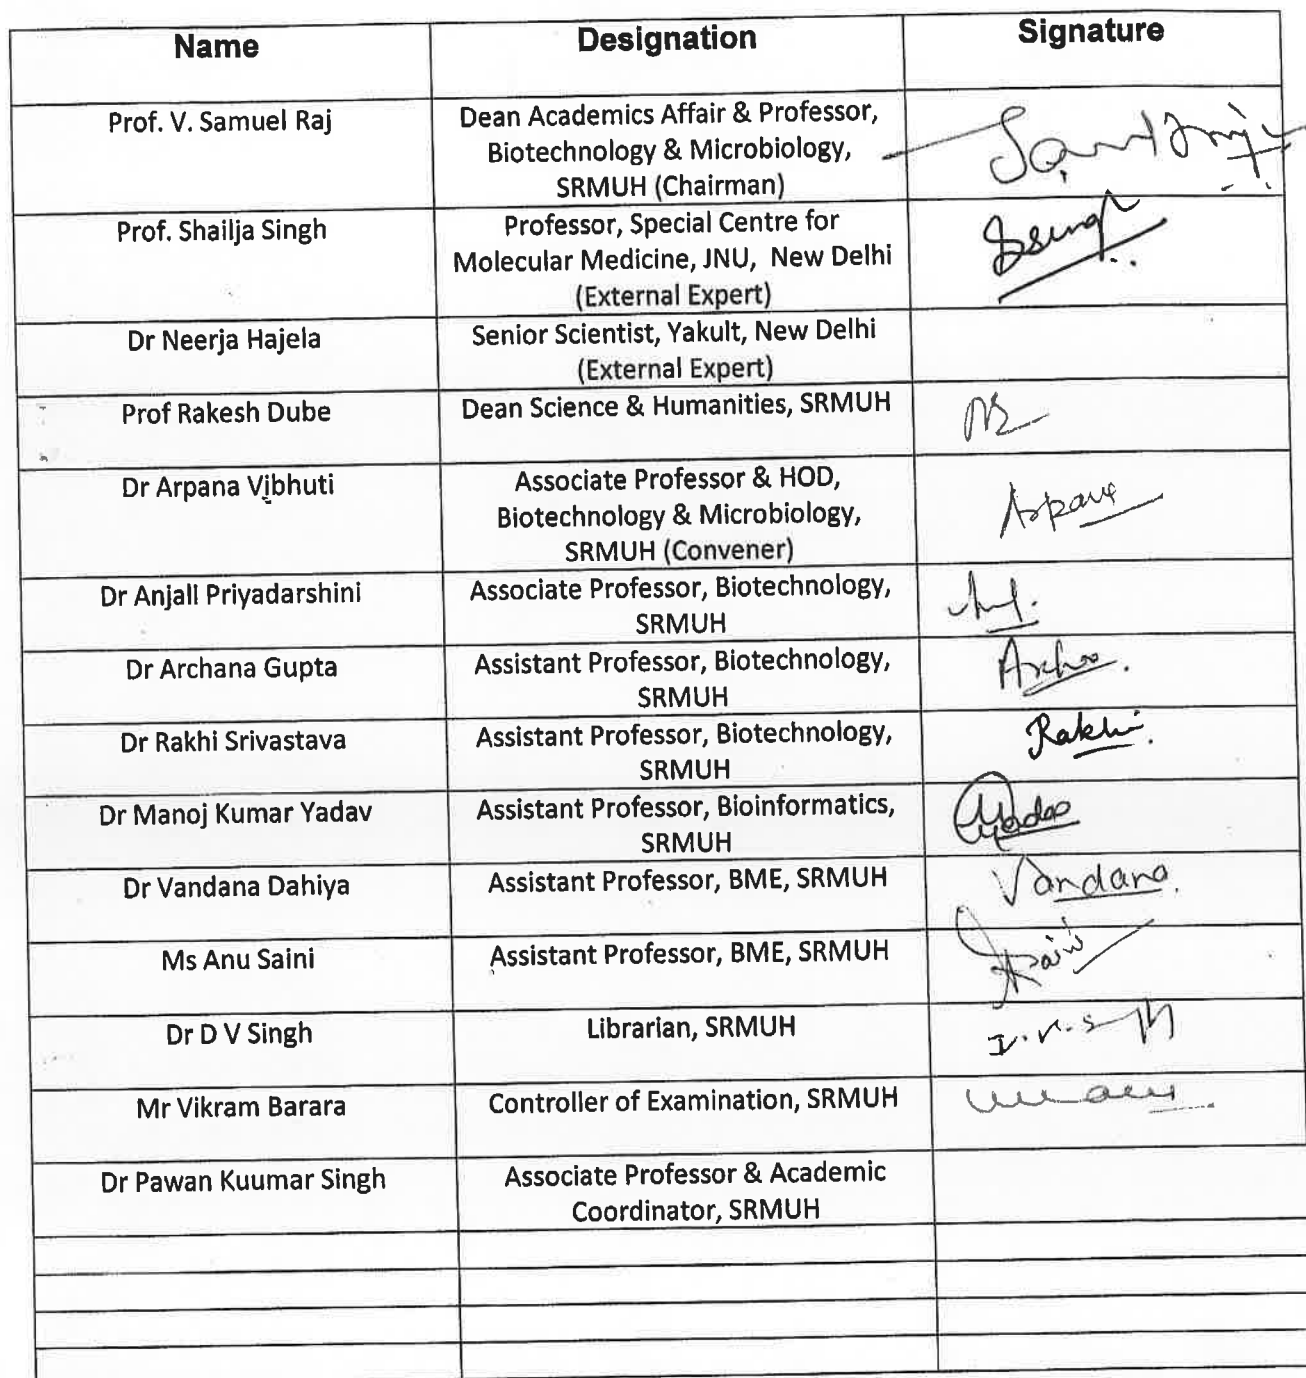 Name Designation Signature
Prof. V. Samuel Raj Dean Academics Affair & Professor,
Biotechnology & Microbiology,
SRMUH (Chairman)
Prof. Shailja Singh Professor, Special Centre for
Molecular Medicine, JNU, New Delhi
(External Expert)
Dr Neerja Hajela Senior Scientist, Yakult, New Delhi
(External Expert)
Prof Rakesh Dube Dean Science & Humanities, SRMUH
Dr Arpana Vibhuti Associate Professor & HOD,
Biotechnology & Microbiology,
SRMUH (Convener)
Arpana
Dr Anjali Priyadarshini Associate Professor, Biotechnology,
SRMUH
Dr Archana Gupta Assistant Professor, Biotechnology,
SRMUH
Dr Rakhi Srivastava Assistant Professor, Biotechnology, Rakhi
SRMUH
Dr Manoj Kumar Yadav Assistant Professor, Bioinformatics,
SRMUH
Dr Vandana Dahiya Assistant Professor, BME, SRMUH Vandana
Ms Anu Saini Assistant Professor, BME, SRMUH
Dr D V Singh Librarian, SRMUH
Mr Vikram Barara Controller of Examination, SRMUH
Dr Pawan Kuumar Singh Associate Professor & Academic
Coordinator, SRMUH